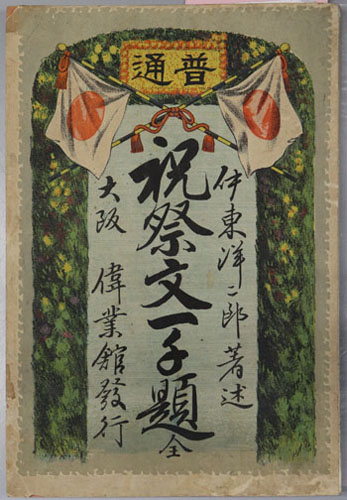 普通
伊東洋二郎著述
祝祭文一千題全
大阪 偉業館發行